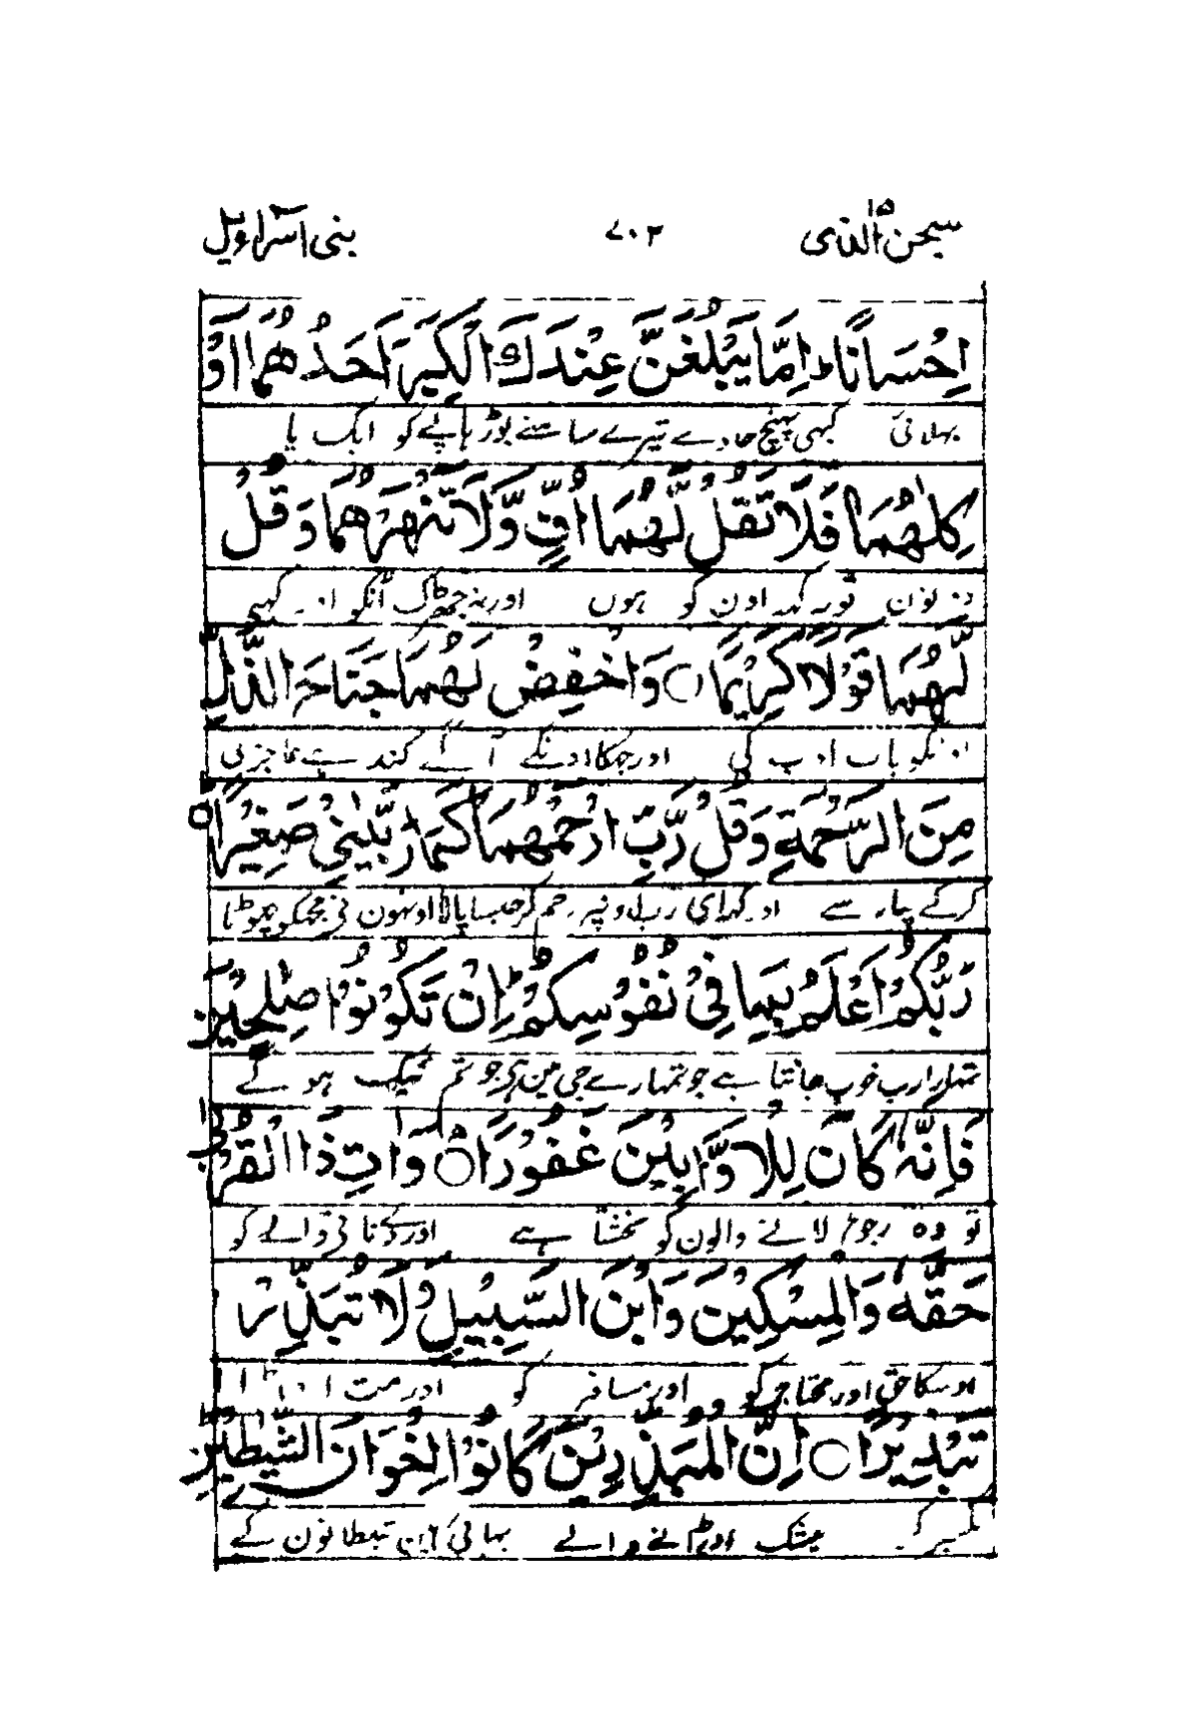 سبحن الذی ۱۵ ۷۰۲ بنی اسراءیل
اِحْسَانًا ؕ اِمَّا يَبْلُغَنَّ عِنْدَكَ الْكِبَرَ اَحَدُهُمَا اَوْ
بہلائی کبہی پہنچ جاوے تیرے سامنے بوڑہاپے کو ایک یا
كِلٰهُمَا فَلَا تَقُلْ لَّهُمَا اُفٍّ وَّلَا تَنْهَرْهُمَا وَقُلْ
دونون تو نہ کہہ اون کو ہوں اور نہ جھڑک انکو اور کہہ
لَّهُمَا قَوْلًا كَرِيْمًا ○ وَاخْفِضْ لَهُمَا جَنَاحَ الذُّلِّ
اونکو بات ادب کی اور جہکا اونکے آگے کندہے عاجزی
مِنَ الرَّحْمَةِ وَقُلْ رَّبِّ ارْحَمْهُمَا كَمَا رَبَّيٰنِيْ صَغِيْرًا ○
کرکے پیار سے اور کہہ ای رب اونپر رحم کر جیسا پالا اونہون نی مجھکو چھوٹا
رَبُّكُمْ اَعْلَمُ بِمَا فِيْ نُفُوْسِكُمْ ؕ اِنْ تَكُوْنُوْا صٰلِحِيْنَ
تمہارا رب خوب جانتا ہے جو تمہارے جی مین ہی جو تم نیک ہو گے
فَاِنَّهٗ كَانَ لِلْاَوَّابِيْنَ غَفُوْرًا ○ وَاٰتِ ذَا الْقُرْبٰى
تو وہ رجوع لانے والون کو بخشتا ہے اور دے ناتی والے کو
حَقَّهٗ وَالْمِسْكِيْنَ وَابْنَ السَّبِيْلِ وَلَا تُبَذِّرْ
اوسکا حق اور محتاج کو اور مسافر کو اور مت اوڑا
تَبْذِيْرًا ○ اِنَّ الْمُبَذِّرِيْنَ كَانُوْٓا اِخْوَانَ الشَّيٰطِيْنِ
بکھیر کر بیشک اوڑانے والے بہائی ہین شیطانون کے